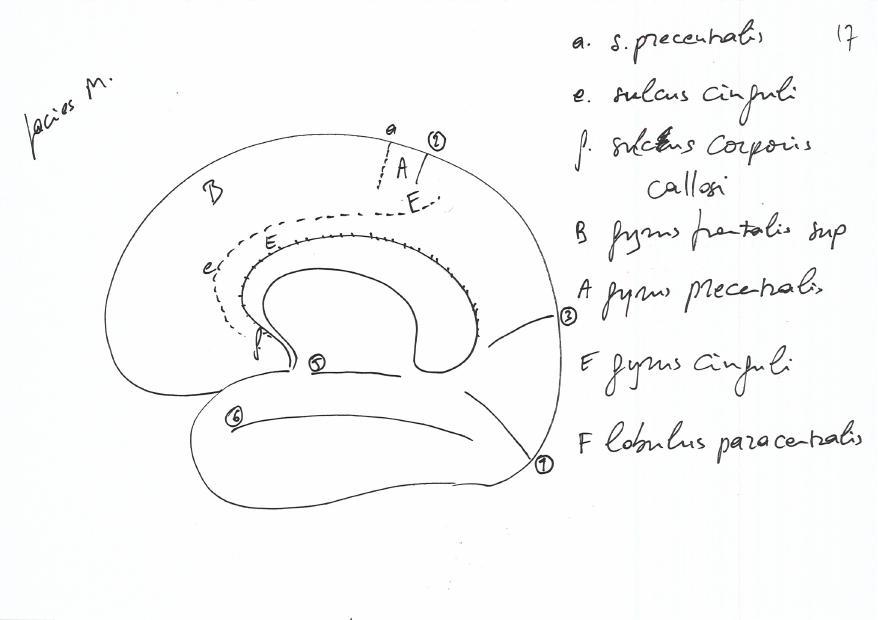 a. s. precentralis
17
e. sulcus cinguli
facies M.
f. sulcus corporis
callosi
a
②
A
B
E
B gyrus frontalis sup
E
e
A gyrus precentralis
③
f
⑤
E gyrus cinguli
⑥
F lobulus paracentralis
①